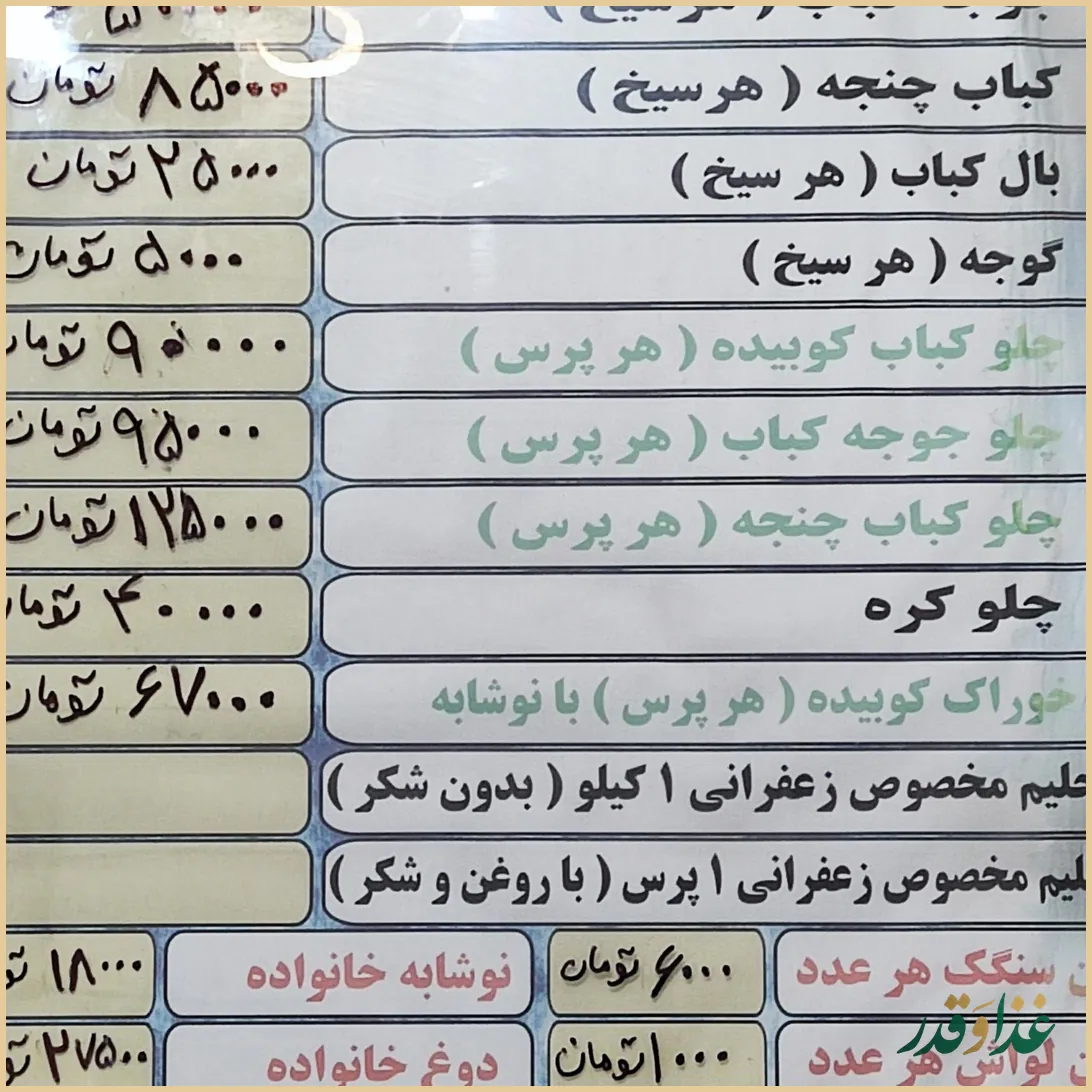 کباب چنجه ( هر سیخ ) ۸۵۰۰۰ تومان
بال کباب ( هر سیخ ) ۲۵۰۰۰ تومان
گوجه ( هر سیخ ) ۵۰۰۰ تومان
چلو کباب کوبیده ( هر پرس ) ۹۰۰۰۰
چلو جوجه کباب ( هر پرس ) ۹۵۰۰۰ تومان
چلو کباب چنجه ( هر پرس ) ۱۲۵۰۰۰ تومان
چلو کره ۴۰۰۰۰
خوراک کوبیده ( هر پرس ) با نوشابه ۶۷۰۰۰ تومان
حلیم مخصوص زعفرانی ۱ کیلو ( بدون شکر )
مخصوص زعفرانی ۱ پرس ( با روغن و شکر )
سنگک هر عدد ۶۰۰۰ تومان نوشابه خانواده ۱۸۰۰۰
لواش هر عدد ۱۰۰۰ تومان دوغ خانواده ۲۷۵۰۰
غذا و قدر